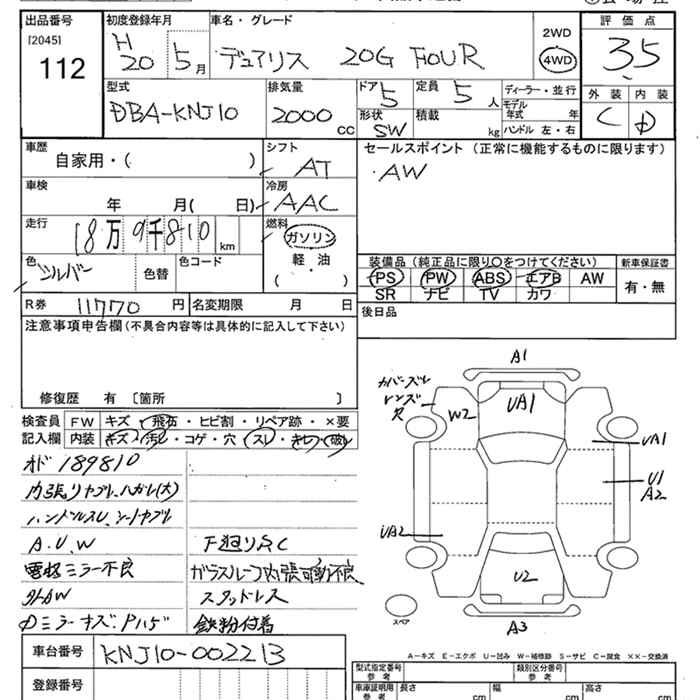 出品番号 初度登録年月 車名・グレード 評価点
[2045] H 2WD
112 20 5月 デュアリス 20G FOUR 4WD 3.5
型式 排気量 ドア 5 定員 5人 ディーラー・並行 外装 内装
DBA-KNJ10 2000cc 形状 SW 積載 kg モデル年式 年 C D
ハンドル 左・右
車歴 シフト セールスポイント (正常に機能するものに限ります)
自家用・( ) AT ・AW
車検 冷房
年 月( 日) AAC
走行 燃料
18万9千810km ガソリン
色 シルバー 色替 色コード 軽・油
( )
装備品 (純正品に限り○をつけてください) 新車保証書
PS PW ABS エアB AW 有・無
SR ナビ TV カワ
R券 11770円 名変期限 月 日 後日品
注意事項申告欄 (不具合内容等は具体的に記入して下さい)
修復歴 有 〔箇所 〕
検査員 FW キズ・飛石・ヒビ割・リペア跡・×要
記入欄 内装 キズ・汚・コゲ・穴
オド 189810
内張りヤブレ、ハガレ(大)
ハンドルスレ、シートヤブレ
A.U.W 下廻りサC
電格ミラー不良
スタッドレス
鉄粉付着
A1
UA1
W2
UA1
U1
A2
UA2
U2
A3
スペア
A−キズ E−エクボ U−凹み W−補修跡 S−サビ C−腐食 XX−交換済
車台番号 KNJ10-002213
登録番号
型式指定番号 参考 類別区分番号 参考
車庫証明用 参考 長さ cm 幅 cm 高さ cm